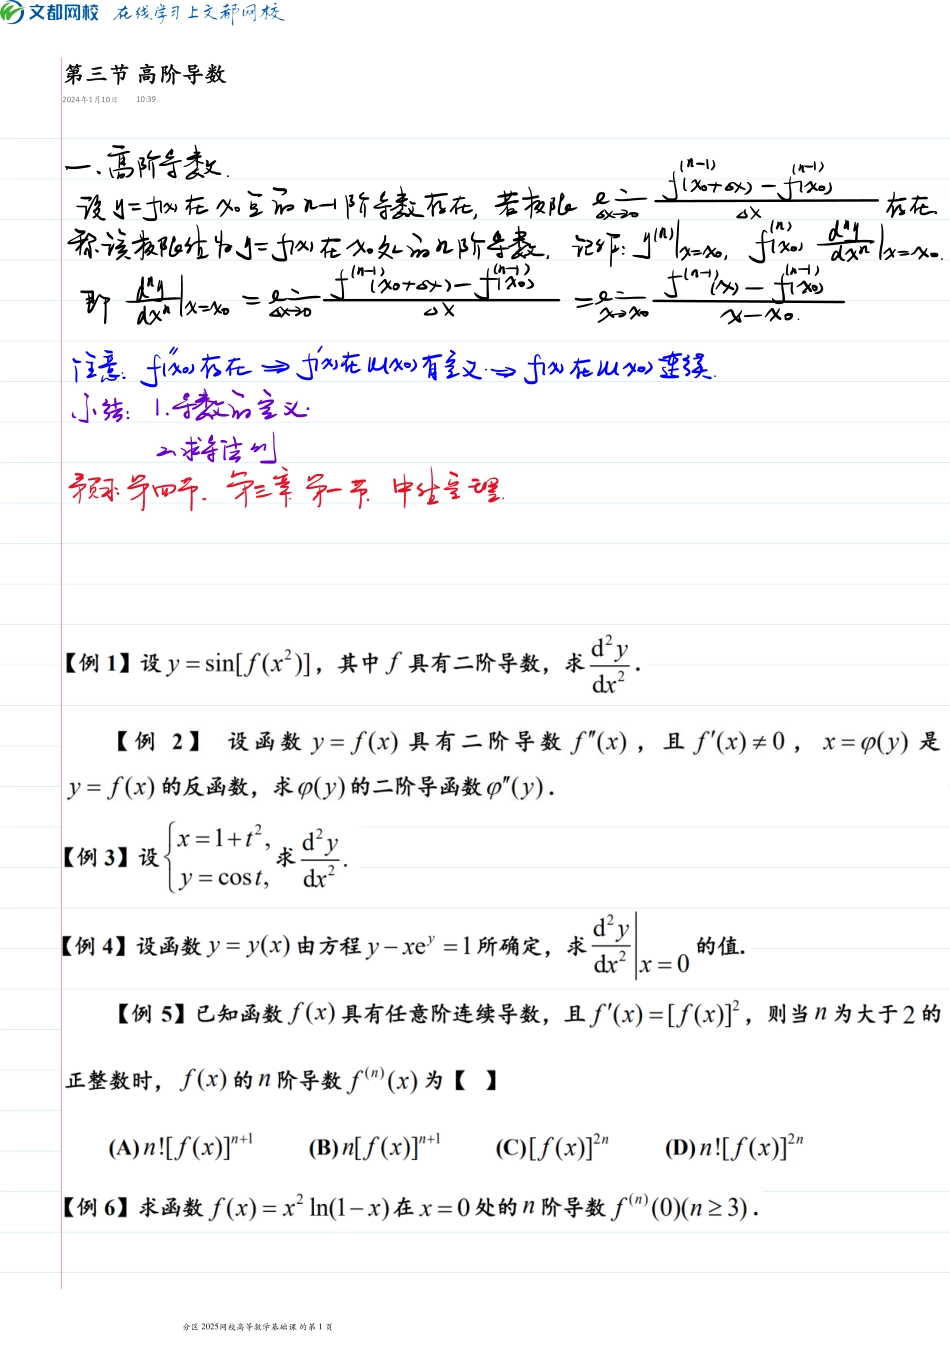 文都网校 在线学习上文都网校
第三节 高阶导数
2024年1月10日 10:39
一、高阶导数.
设y=f(x)在x₀点的n-1阶导数存在, 若极限 lim_{Δx→0} [f^{(n-1)}(x₀+Δx) - f^{(n-1)}(x₀)]/Δx 存在
称该极限值为y=f(x)在x₀处的n阶导数, 记作: y^{(n)}|_{x=x₀}, f^{(n)}(x₀) d^n y/dx^n|_{x=x₀}.
即 d^n y/dx^n|_{x=x₀} = lim_{Δx→0} [f^{(n-1)}(x₀+Δx) - f^{(n-1)}(x₀)]/Δx = lim_{x→x₀} [f^{(n-1)}(x) - f^{(n-1)}(x₀)]/(x-x₀).
注意: f''(x₀)存在 ⇒ f'(x)在U(x₀)有定义 ⇒ f(x)在U(x₀)连续.
小结: 1.导数的定义.
2.求导法则
预习: 第四节. 第三章 第一节 中值定理.
【例 1】设 y = sin[f(x²)], 其中 f 具有二阶导数, 求 d²y/dx² .
【例 2】 设函数 y = f(x) 具有二阶导数 f″(x), 且 f′(x) ≠ 0, x = φ(y) 是
y = f(x) 的反函数, 求 φ(y) 的二阶导函数 φ″(y).
【例 3】设 { x = 1 + t², y = cos t, 求 d²y/dx² .
【例 4】设函数 y = y(x) 由方程 y − xe^y = 1 所确定, 求 d²y/dx² | x = 0 的值.
【例 5】已知函数 f(x) 具有任意阶连续导数, 且 f′(x) = [f(x)]², 则当 n 为大于 2 的
正整数时, f(x) 的 n 阶导数 f^{(n)}(x) 为【 】
(A) n![f(x)]^{n+1} (B) n[f(x)]^{n+1} (C) [f(x)]^{2n} (D) n![f(x)]^{2n}
【例 6】求函数 f(x) = x² ln(1 − x) 在 x = 0 处的 n 阶导数 f^{(n)}(0)(n ≥ 3).
分区 2025网校高等数学基础课 的第 1 页